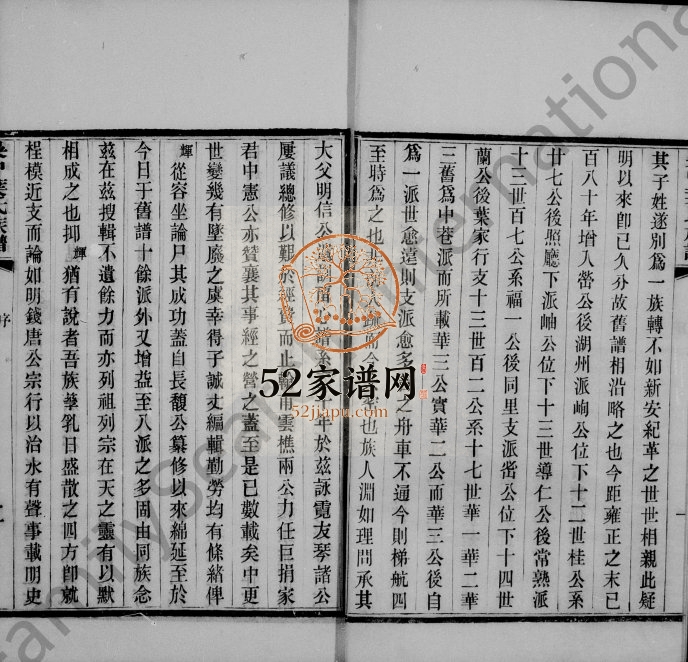 其子姓遂別爲一族轉不如新安紀革之世世相親此疑
明以來卽已久分故舊譜相沿略之也今距雍正之末已
百八十年增入嵤公後湖州派峋公位下十二世桂公系
廿七公後照廳下派岫公位下十三世導仁公後常熟派
十三世百七公系福一公後同里支派峃公位下十四世
蘭公後葉家行支十三世百二公系十七世華一華二華
三舊爲中巷派而所載華三公實華二公而華三公後自
爲一派世愈遠則支派愈多
之舟車不通今則梯航四
至時爲之也
也族人淵如理問承其
大父明信公
年於茲詠霓友琴諸公
屢議總修以艱於經費而止
用雲樵兩公力任巨捐家
君中憲公亦贊襄其事經之營之蓋至是已數載矣中更
世變幾有墜廢之虞幸得子誠丈編輯勸勞均有條緒俾
輝從容坐論尸其成功蓋自長馥公纂修以來綿延至於
今日于舊譜十餘派外又增益至八派之多固由同族念
茲在茲搜輯不遺餘力而亦列祖列宗在天之靈有以默
相成之也抑輝猶有說者吾族孳乳日盛散之四方卽就
桯模近支而論如明錢唐公宗行以治水有聲事載明史
氏族譜
序
52家谱网
52jiapu.com
FamilySearch International